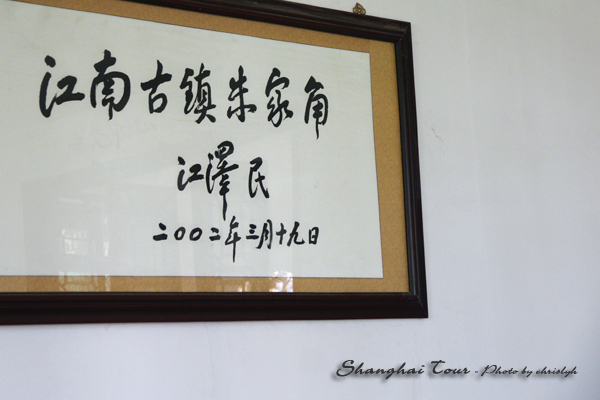 江南古鎮朱家角
江澤民
二〇〇二年三月十九日
Shanghai Tour - Photo by chrislyh